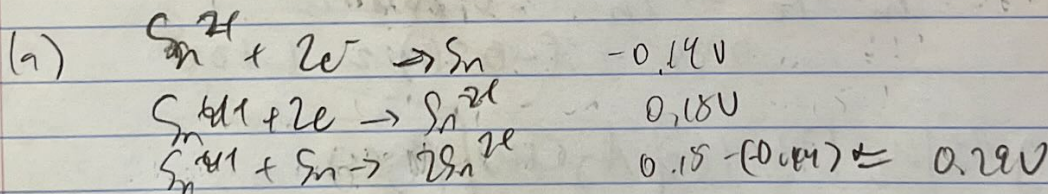 (a) Sn²⁺ + 2e⁻ → Sn -0.14V
Sn⁴⁺ + 2e → Sn²⁺ 0.15V
Sn⁴⁺ + Sn → 2Sn²⁺ 0.15 - (-0.14) = 0.29V